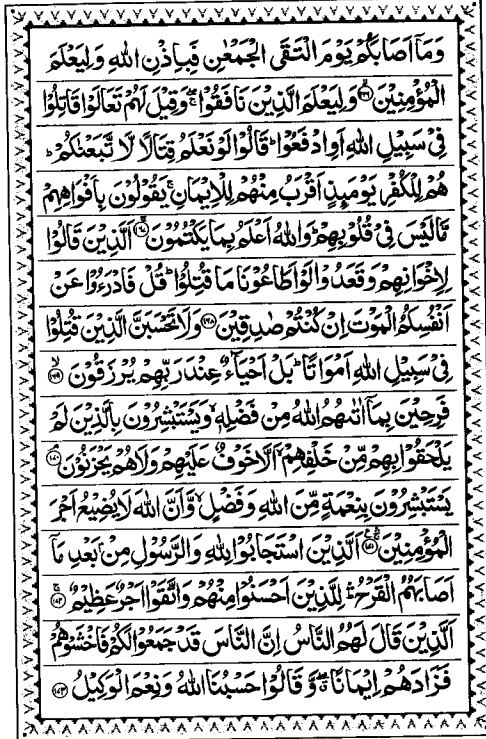 وَمَآ اَصَابَكُمْ يَوْمَ الْتَقَى الْجَمْعٰنِ فَبِاِذْنِ اللهِ وَلِيَعْلَمَ
الْمُؤْمِنِيْنَ ﴿۱۶۶﴾ وَلِيَعْلَمَ الَّذِيْنَ نَافَقُوْا ۚۖ وَقِيْلَ لَهُمْ تَعَالَوْا قَاتِلُوْا
فِيْ سَبِيْلِ اللهِ اَوِ ادْفَعُوْا ؕ قَالُوْا لَوْ نَعْلَمُ قِتَالًا لَّا تَّبَعْنٰكُمْ ؕ
هُمْ لِلْكُفْرِ يَوْمَىِٕذٍ اَقْرَبُ مِنْهُمْ لِلْاِيْمَانِ ۚ يَقُوْلُوْنَ بِاَفْوَاهِهِمْ
مَّا لَيْسَ فِيْ قُلُوْبِهِمْ ؕ وَاللهُ اَعْلَمُ بِمَا يَكْتُمُوْنَ ﴿۱۶۷﴾ اَلَّذِيْنَ قَالُوْا
لِاِخْوَانِهِمْ وَقَعَدُوْا لَوْ اَطَاعُوْنَا مَا قُتِلُوْا ؕ قُلْ فَادْرَءُوْا عَنْ
اَنْفُسِكُمُ الْمَوْتَ اِنْ كُنْتُمْ صٰدِقِيْنَ ﴿۱۶۸﴾ وَلَا تَحْسَبَنَّ الَّذِيْنَ قُتِلُوْا
فِيْ سَبِيْلِ اللهِ اَمْوَاتًا ؕ بَلْ اَحْيَآءٌ عِنْدَ رَبِّهِمْ يُرْزَقُوْنَ ﴿۱۶۹﴾ۙ
فَرِحِيْنَ بِمَآ اٰتٰىهُمُ اللهُ مِنْ فَضْلِهٖ ۙ وَيَسْتَبْشِرُوْنَ بِالَّذِيْنَ لَمْ
يَلْحَقُوْا بِهِمْ مِّنْ خَلْفِهِمْ ۙ اَلَّا خَوْفٌ عَلَيْهِمْ وَلَا هُمْ يَحْزَنُوْنَ ﴿۱۷۰﴾ۘ
يَسْتَبْشِرُوْنَ بِنِعْمَةٍ مِّنَ اللهِ وَفَضْلٍ ۙ وَّاَنَّ اللهَ لَا يُضِيْعُ اَجْرَ
الْمُؤْمِنِيْنَ ﴿۱۷۱﴾ۚۛ اَلَّذِيْنَ اسْتَجَابُوْا لِلهِ وَالرَّسُوْلِ مِنْۢ بَعْدِ مَآ
اَصَابَهُمُ الْقَرْحُ ۛؕ لِلَّذِيْنَ اَحْسَنُوْا مِنْهُمْ وَاتَّقَوْا اَجْرٌ عَظِيْمٌ ﴿۱۷۲﴾ۚ
اَلَّذِيْنَ قَالَ لَهُمُ النَّاسُ اِنَّ النَّاسَ قَدْ جَمَعُوْا لَكُمْ فَاخْشَوْهُمْ
فَزَادَهُمْ اِيْمَانًا ۖۗ وَّ قَالُوْا حَسْبُنَا اللهُ وَنِعْمَ الْوَكِيْلُ ﴿۱۷۳﴾